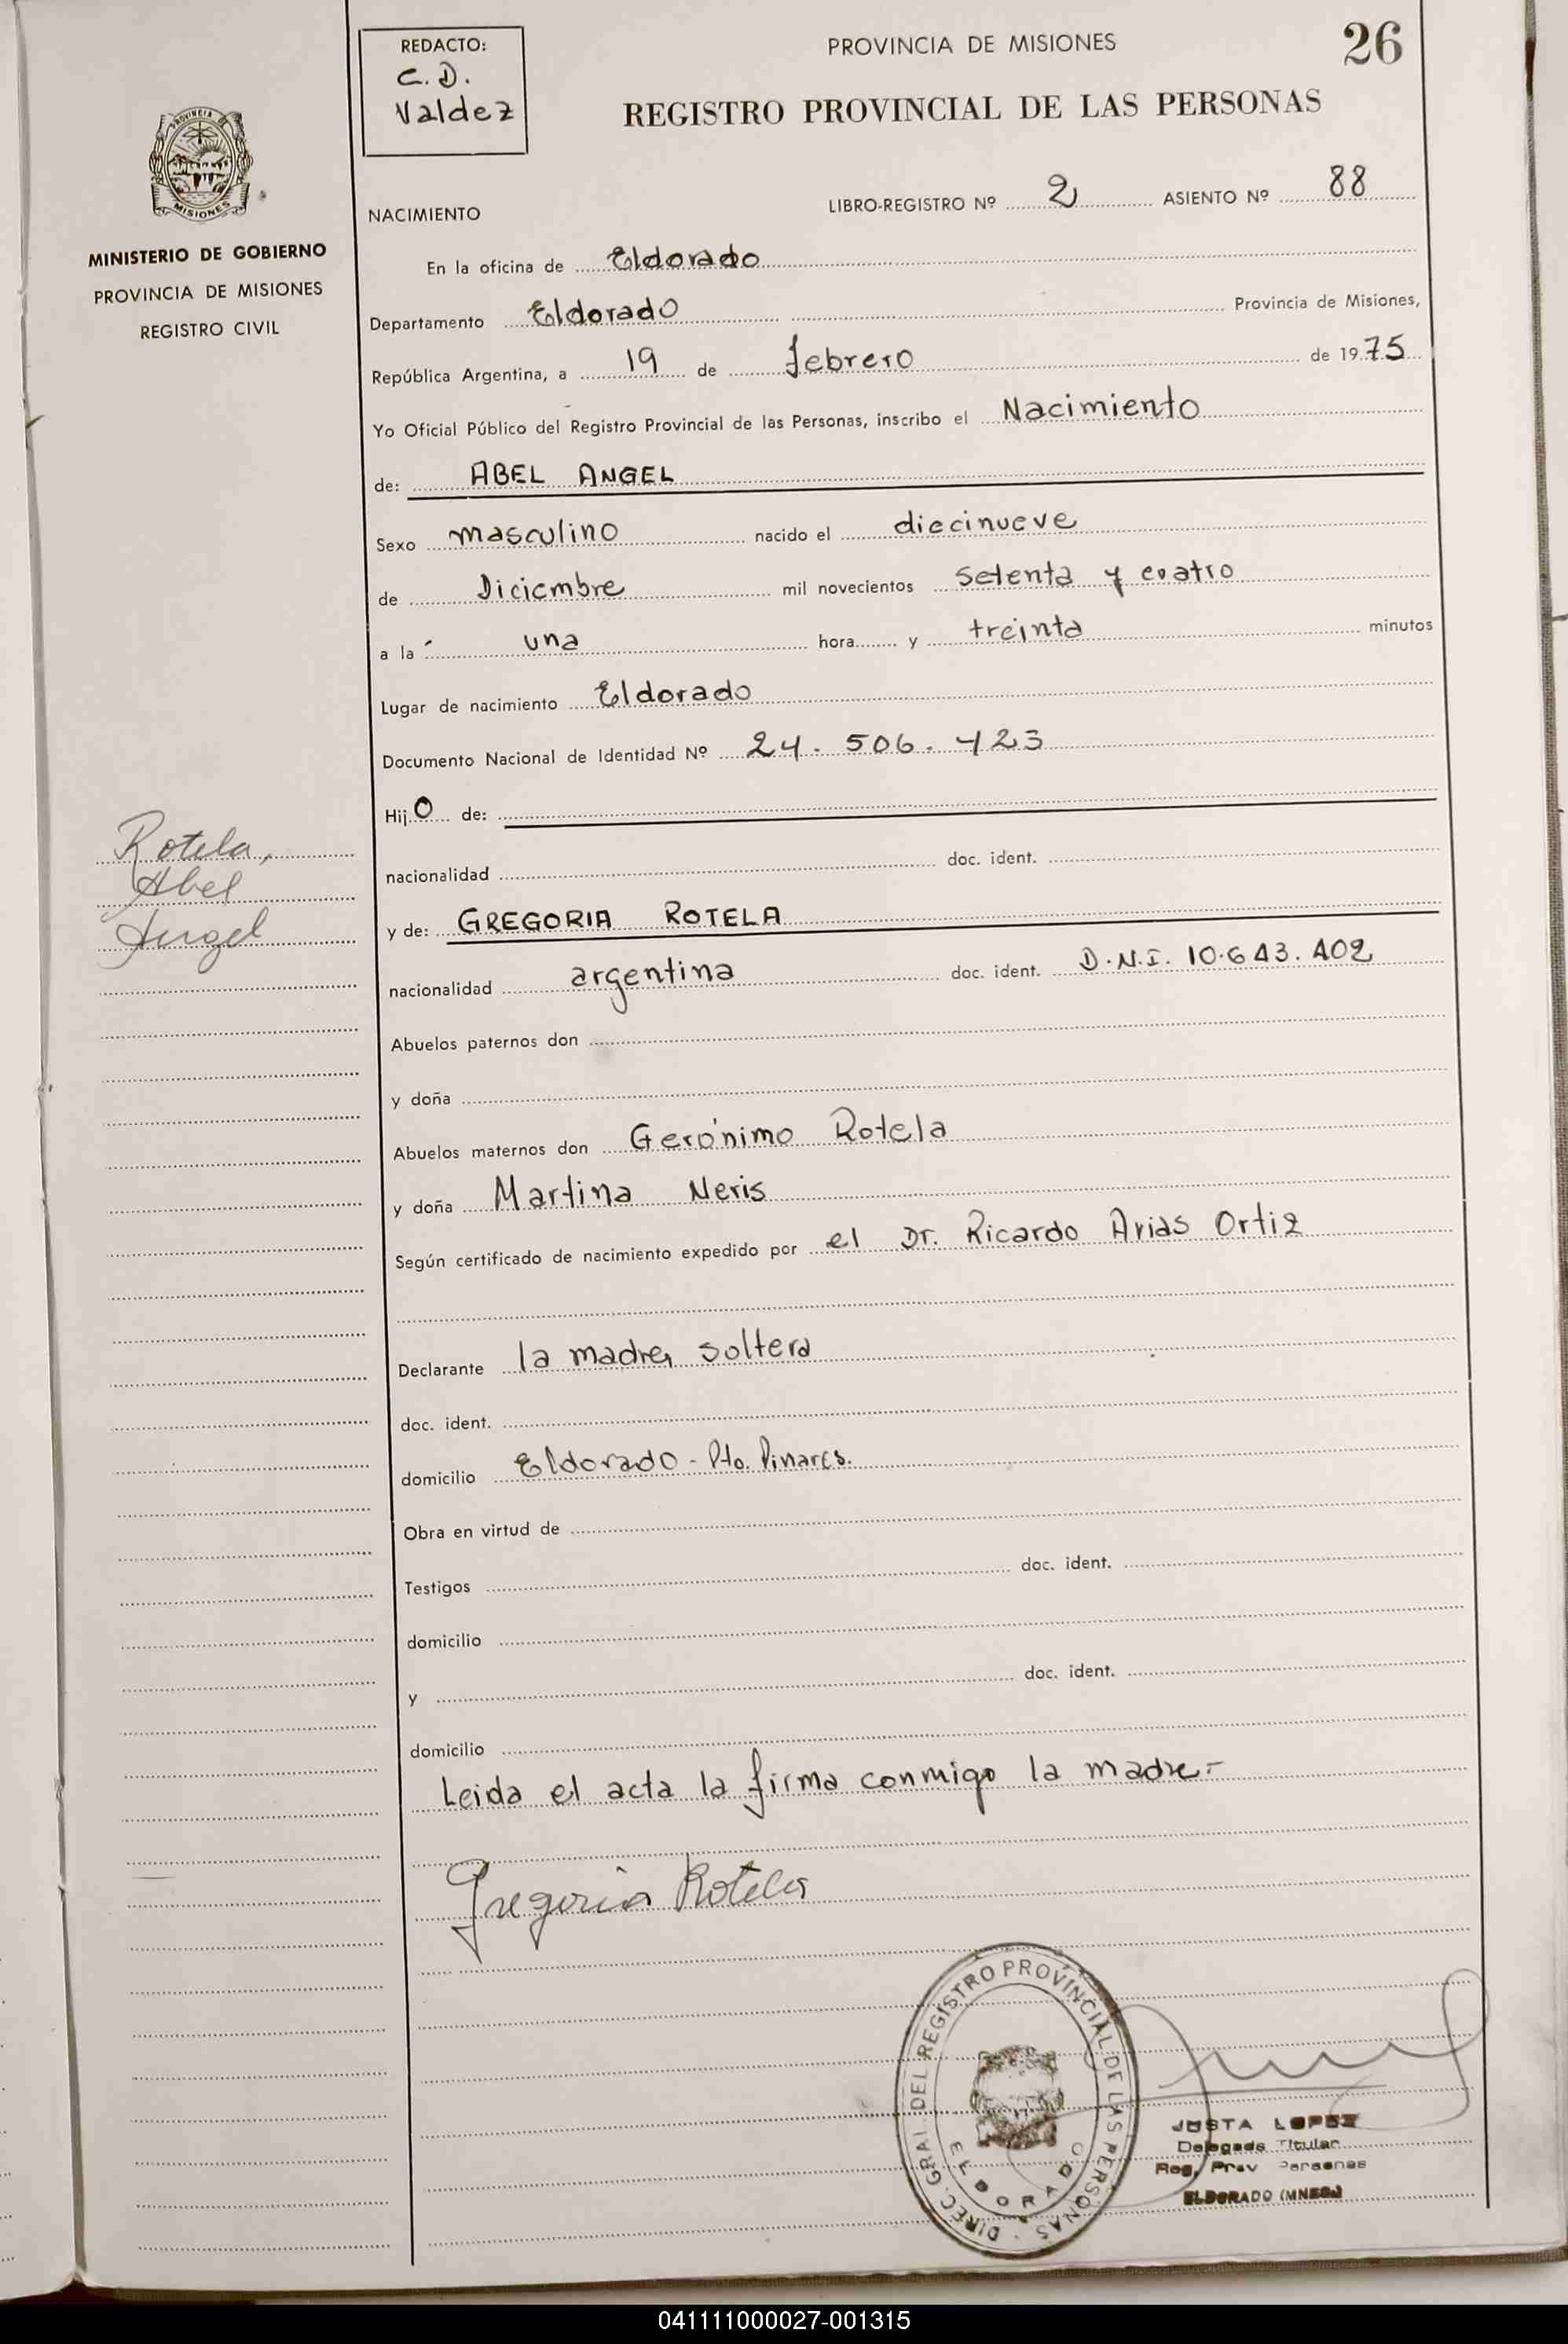 REDACTO:
C. D.
Valdez
PROVINCIA DE MISIONES
26
REGISTRO PROVINCIAL DE LAS PERSONAS
PROVINCIA DE
MISIONES
MINISTERIO DE GOBIERNO
PROVINCIA DE MISIONES
REGISTRO CIVIL
NACIMIENTO
LIBRO-REGISTRO Nº 2 ASIENTO Nº 88
En la oficina de Eldorado
Departamento Eldorado Provincia de Misiones,
República Argentina, a 19 de febrero de 1975
Yo Oficial Público del Registro Provincial de las Personas, inscribo el Nacimiento
de: ABEL ANGEL
Sexo masculino nacido el diecinueve
de Diciembre mil novecientos setenta y cuatro
a la una hora y treinta minutos
Lugar de nacimiento Eldorado
Documento Nacional de Identidad Nº 24.506.423
Hijo de:
nacionalidad doc. ident.
Rotela,
Abel
Angel
y de: GREGORIA ROTELA
nacionalidad argentina doc. ident. D.N.I. 10.643.402
Abuelos paternos don
y doña
Abuelos maternos don Gerónimo Rotela
y doña Martina Neris
Según certificado de nacimiento expedido por el Dr. Ricardo Arias Ortiz
Declarante la madre, soltera
doc. ident.
domicilio Eldorado - Pto. Pinares.
Obra en virtud de
Testigos doc. ident.
domicilio
y doc. ident.
domicilio
Leida el acta la firma conmigo la madre.-
Gregoria Rotela
DIREC. GRAL. DEL REGISTRO PROVINCIAL DE LAS PERSONAS
ELDORADO
JUSTA LOPEZ
Delegada Titular
Reg. Prov Personas
ELDORADO (MNES.)
041111000027-001315